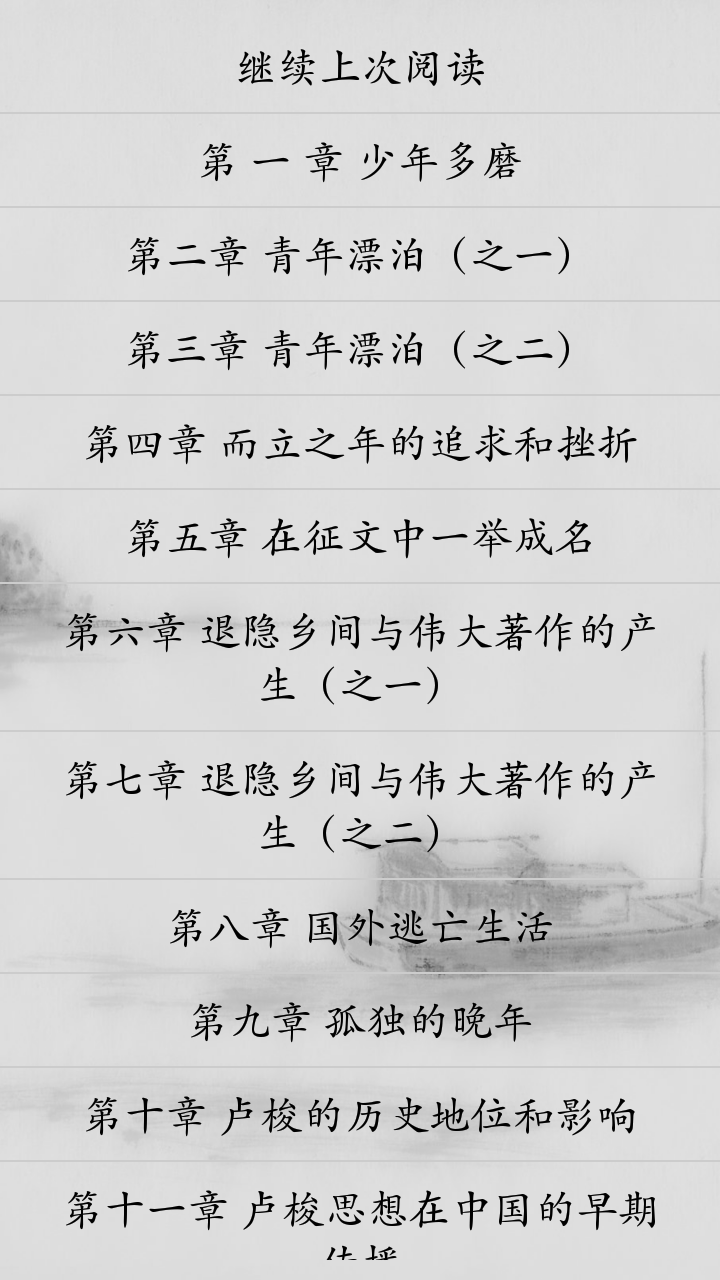 继续上次阅读
第 一 章 少年多磨
第二章 青年漂泊（之一）
第三章 青年漂泊（之二）
第四章 而立之年的追求和挫折
第五章 在征文中一举成名
第六章 退隐乡间与伟大著作的产
生（之一）
第七章 退隐乡间与伟大著作的产
生（之二）
第八章 国外逃亡生活
第九章 孤独的晚年
第十章 卢梭的历史地位和影响
第十一章 卢梭思想在中国的早期
传播